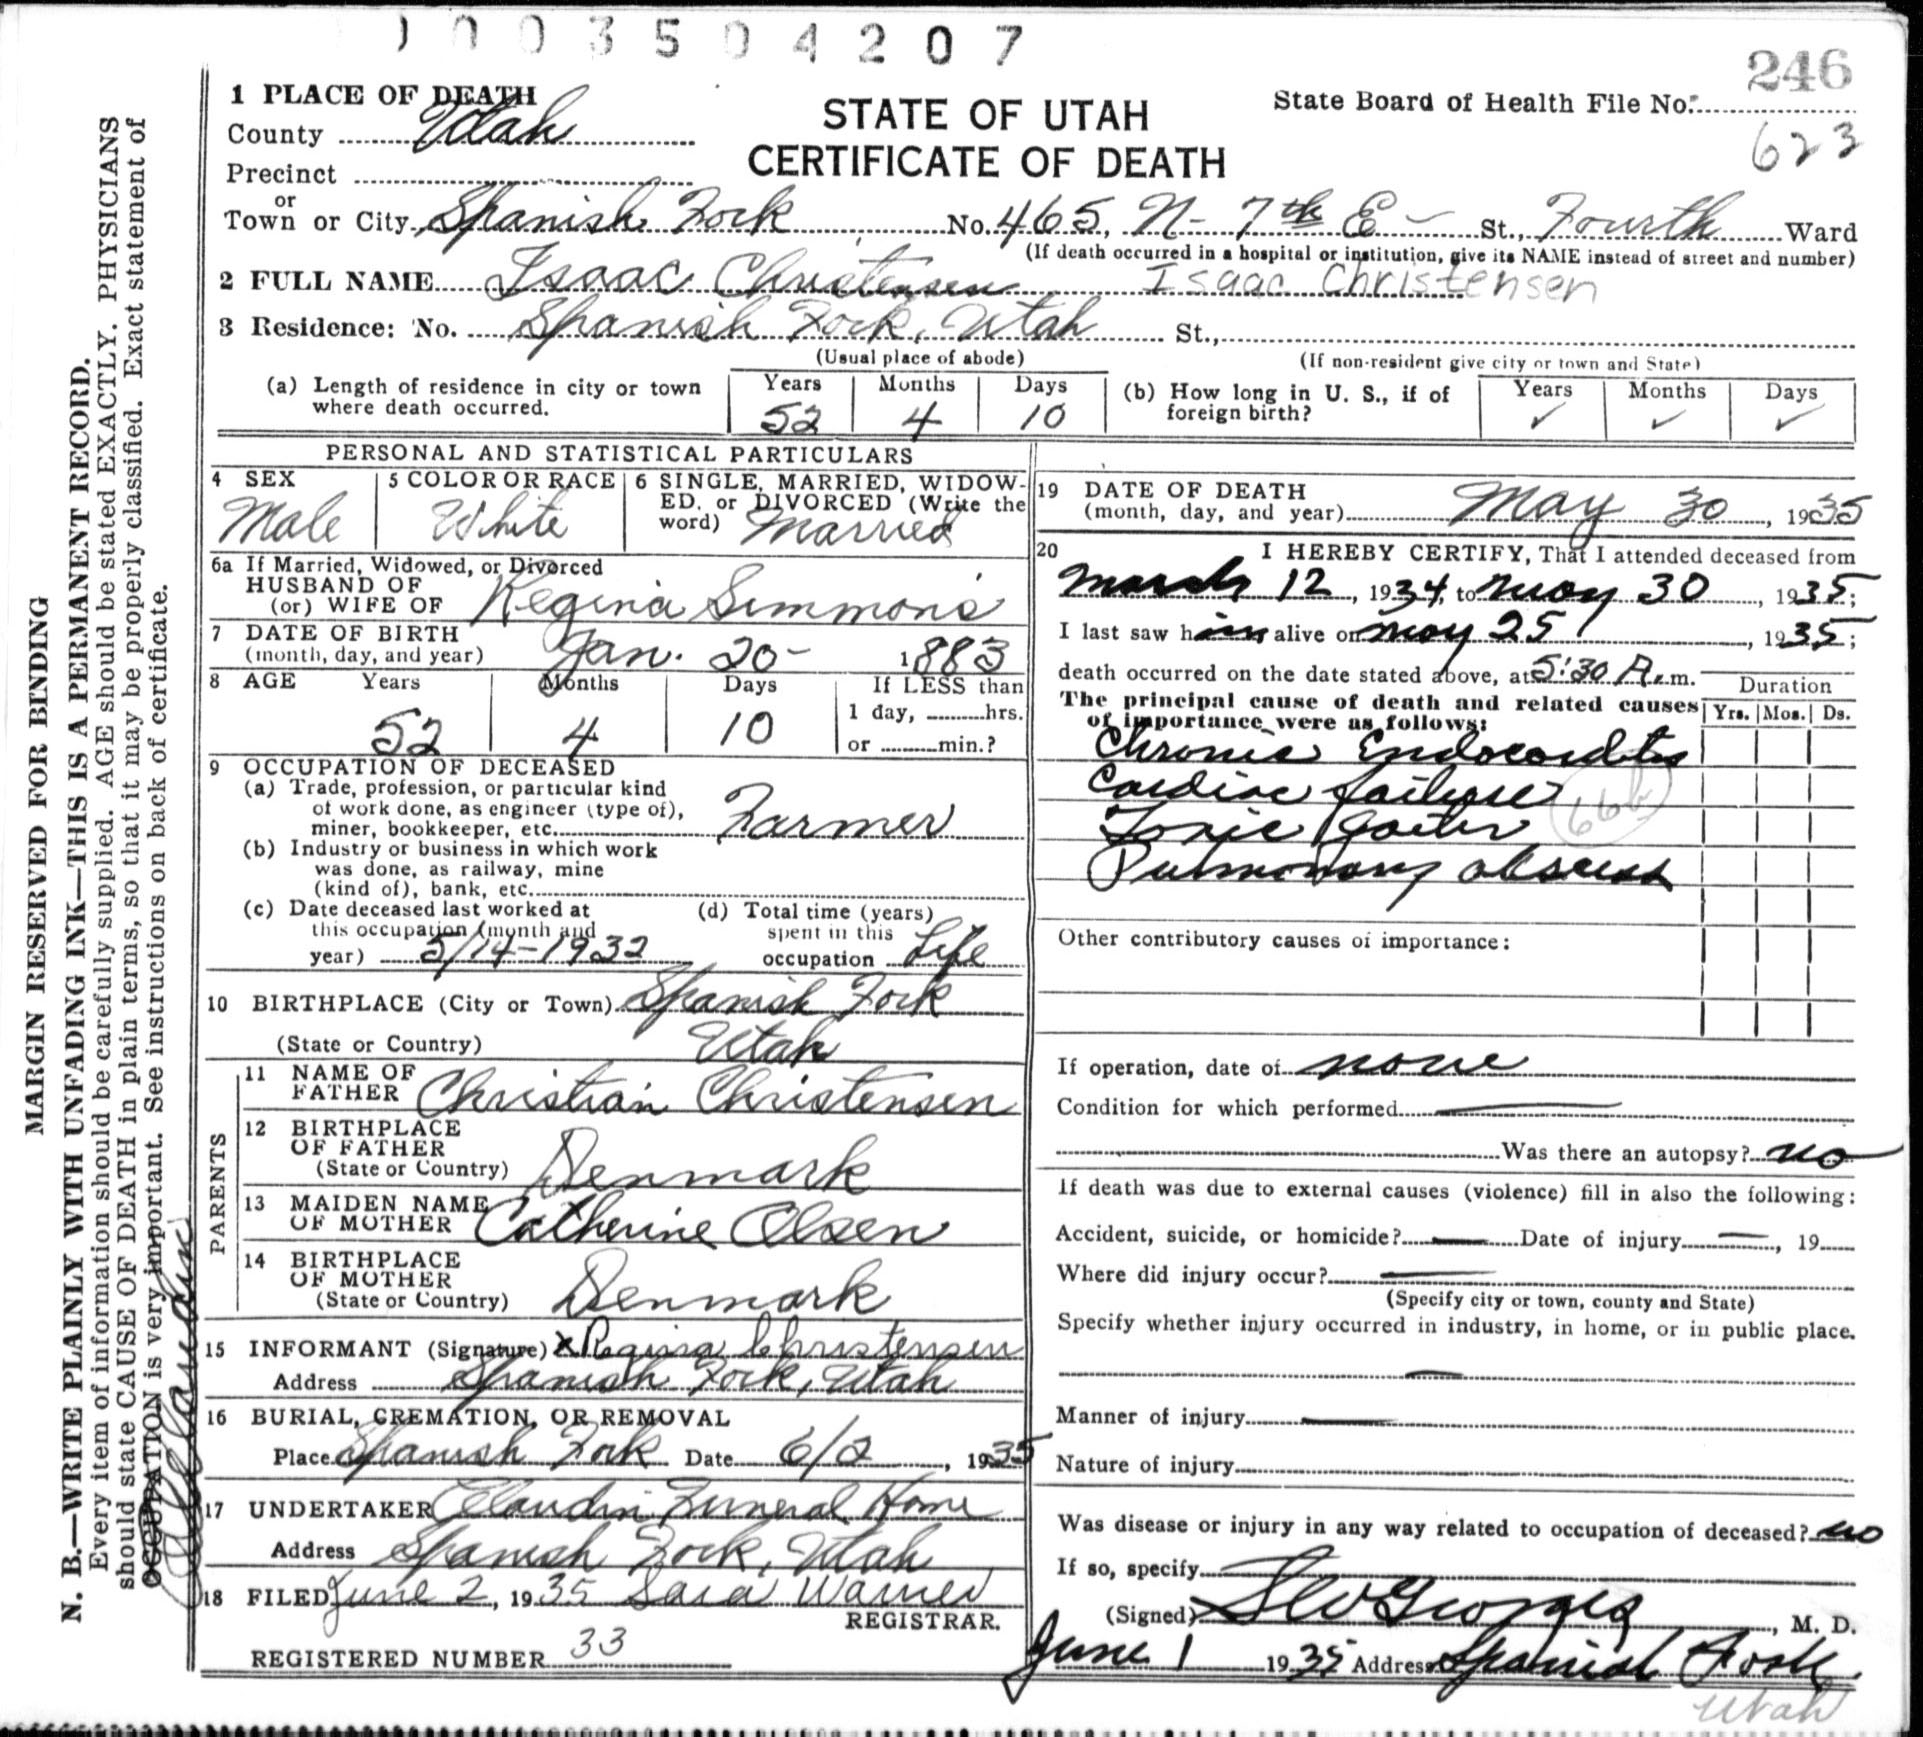 1003504207
246
1 PLACE OF DEATH
County Utah
STATE OF UTAH
CERTIFICATE OF DEATH
State Board of Health File No.
623
Precinct
or
Town or City Spanish Fork No. 465, N- 7th E- St., Fourth Ward
(If death occurred in a hospital or institution, give its NAME instead of street and number)
2 FULL NAME Isaac Christensen Isaac Christensen
3 Residence: No. Spanish Fork, Utah St.,
(Usual place of abode) (If non-resident give city or town and State)
(a) Length of residence in city or town where death occurred. Years 52 Months 4 Days 10
(b) How long in U. S., if of foreign birth? Years ✓ Months ✓ Days ✓
PERSONAL AND STATISTICAL PARTICULARS
4 SEX Male
5 COLOR OR RACE White
6 SINGLE, MARRIED, WIDOWED, or DIVORCED (Write the word) Married
6a If Married, Widowed, or Divorced
HUSBAND OF
(or) WIFE OF Regina Simmons
7 DATE OF BIRTH
(month, day, and year) Jan. 20- 1883
8 AGE Years 52 Months 4 Days 10 If LESS than
1 day, hrs.
or min.?
9 OCCUPATION OF DECEASED
(a) Trade, profession, or particular kind
of work done, as engineer (type of),
miner, bookkeeper, etc. Farmer
(b) Industry or business in which work
was done, as railway, mine
(kind of), bank, etc.
(c) Date deceased last worked at
this occupation (month and
year) 5/14-1932
(d) Total time (years)
spent in this
occupation Life
10 BIRTHPLACE (City or Town) Spanish Fork
(State or Country) Utah
PARENTS
11 NAME OF
FATHER Christian Christensen
12 BIRTHPLACE
OF FATHER
(State or Country) Denmark
13 MAIDEN NAME
OF MOTHER Catherine Olsen
14 BIRTHPLACE
OF MOTHER
(State or Country) Denmark
15 INFORMANT (Signature) x Regina Christensen
Address Spanish Fork, Utah
16 BURIAL, CREMATION, OR REMOVAL
Place Spanish Fork Date 6/2, 1935
17 UNDERTAKER Claudin Funeral Home
Address Spanish Fork, Utah
18 FILED June 2, 1935 Sara Warner
REGISTRAR.
REGISTERED NUMBER 33
19 DATE OF DEATH
(month, day, and year) May 30, 1935
20 I HEREBY CERTIFY, That I attended deceased from
March 12, 1934, to May 30, 1935;
I last saw him alive on May 25, 1935;
death occurred on the date stated above, at 5:30 A.m.
The principal cause of death and related causes
of importance were as follows:
Duration
Yrs. Mos. Ds.
Chronic Endocarditis
Cardiac failure
Toxic Goiter
66b
Pulmonary abscess
Other contributory causes of importance:
If operation, date of none
Condition for which performed
Was there an autopsy? no
If death was due to external causes (violence) fill in also the following:
Accident, suicide, or homicide? Date of injury, 19
Where did injury occur?
(Specify city or town, county and State)
Specify whether injury occurred in industry, in home, or in public place.
Manner of injury
Nature of injury
Was disease or injury in any way related to occupation of deceased? no
If so, specify
(Signed), M. D.
June 1 1935 Address Spanish Fork
Utah
MARGIN RESERVED FOR BINDING
N. B.—WRITE PLAINLY WITH UNFADING INK—THIS IS A PERMANENT RECORD.
Every item of information should be carefully supplied. AGE should be stated EXACTLY. PHYSICIANS
should state CAUSE OF DEATH in plain terms, so that it may be properly classified. Exact statement of
OCCUPATION is very important. See instructions on back of certificate.